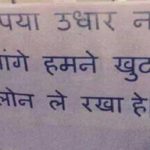 पया उधार न
ांगे हमने खुद
लोन ले रखा है.